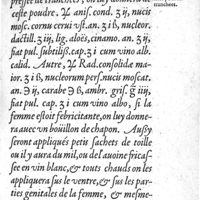 ceste poudre. ℞ anis. cond. ʒ ij, nucis
mosc. cornu cerui vst. an. ʒ i ß, nucleor.
dactill. ʒ ij, lig. aloës, cinamo. an. ʒ ij,
fiat pul. subtiliß. cap. ʒ i cum vino alb.
calid. Autre, ℞ Rad. consolidæ ma-
ior. ʒ i ß, nucleorum pers. nucis moscat.
an. ℈ ij, carabe ℈ ß, ambr. gris. g̃ iiij,
fiat pul. cap. ʒ i cum vino albo, si la
femme estoit febricitante, on luy donne-
ra auec vn boüillon de chapon. Außy
seront appliqués petis sachets de toille
ou il y aura du mil, ou de l'auoine fricas-
sée en vin blanc, & tous chauds on les
appliquera sus le ventre, & sus les par-
ties genitales de la femme, & mesme-